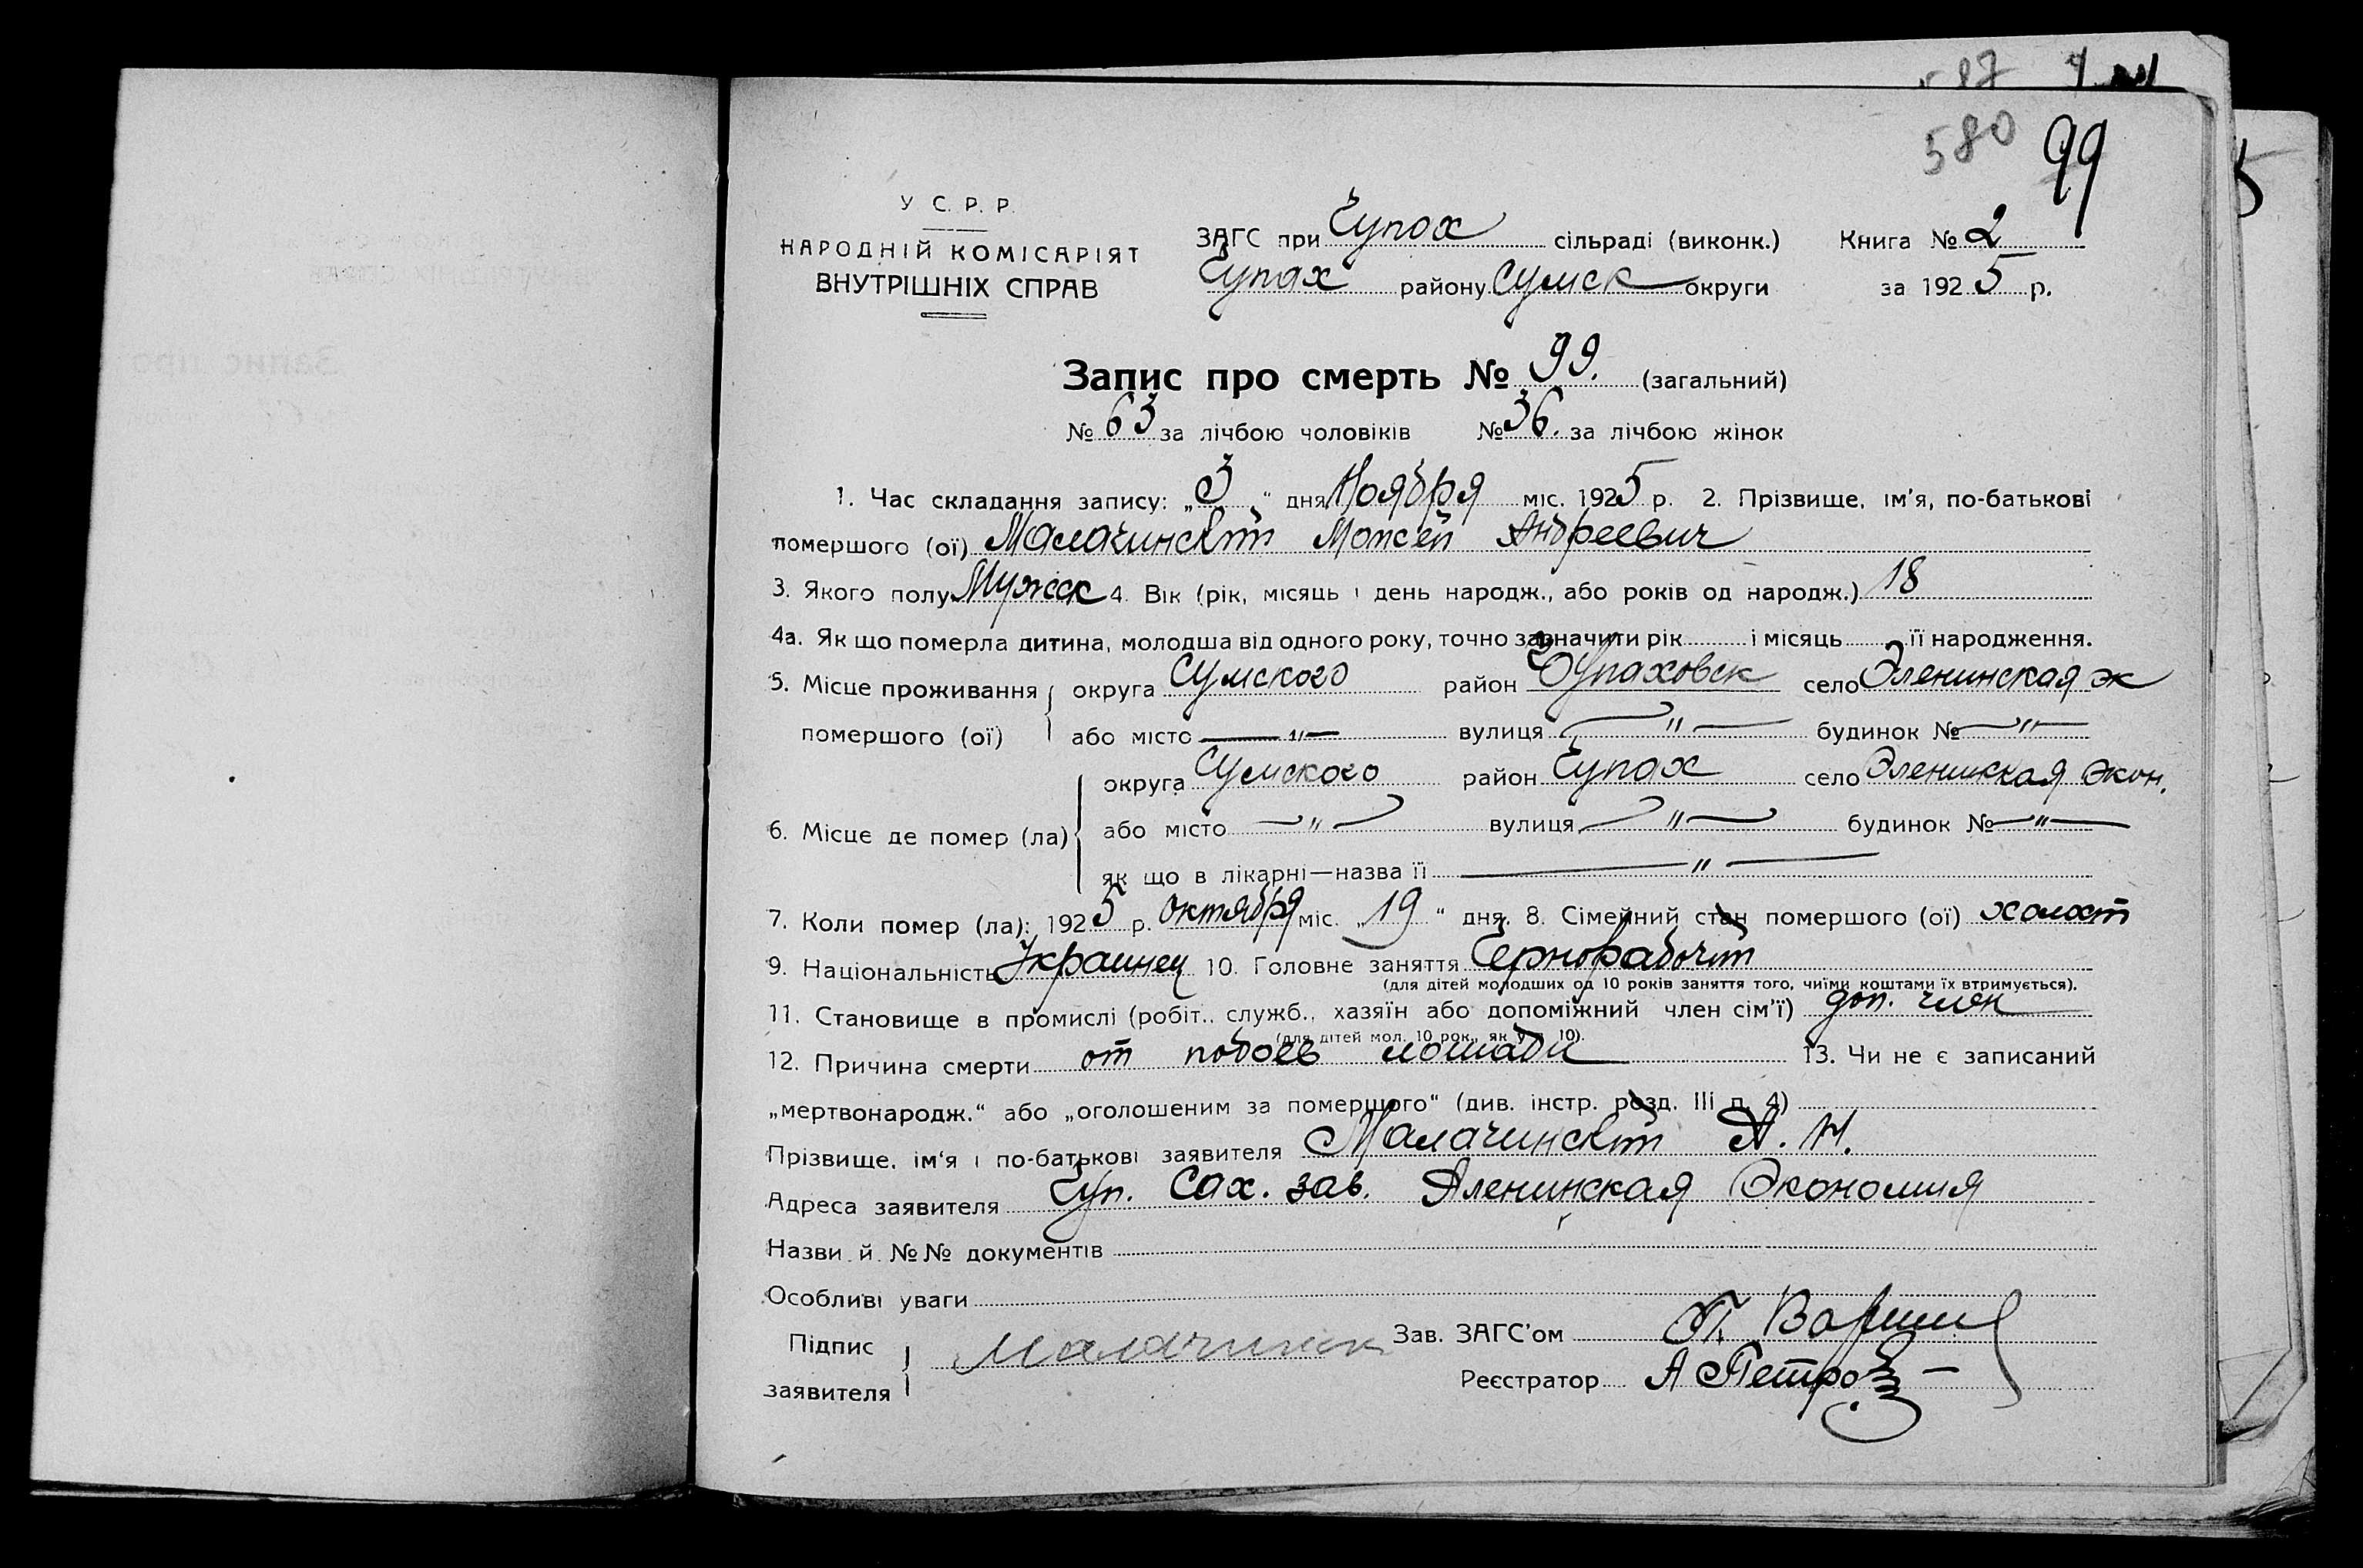 587
580 99
У С. Р. Р.
НАРОДНІЙ КОМІСАРІЯТ
ВНУТРІШНІХ СПРАВ
ЗАГС при Чупах сільраді (виконк.) Книга № 2
Чупах району Сумск округи за 1925 р.
Запис про смерть № 99. (загальний)
№ 63 за лічбою чоловіків № 36. за лічбою жінок
1. Час складання запису: „3“ дня Ноября міс. 1925 р. 2. Прізвище, ім'я, по-батькові
помершого (ої) Малачинский Моисей Андреевич
3. Якого полу Мужск 4. Вік (рік, місяць і день народж., або років од народж.) 18
4а. Як що померла дитина, молодша від одного року, точно зазначити рік і місяць її народження.
5. Місце проживання округа Сумского район Чупаховск село Эленинская эк
помершого (ої) або місто —„— вулиця —„— будинок № —„—
округа Сумского район Чупах село Эленинская экон.
6. Місце де помер (ла) або місто —„— вулиця —„— будинок № —„—
як що в лікарні—назва її —„—
7. Коли помер (ла): 1925 р. октября міс. „19“ дня. 8. Сімейний стан помершого (ої) холост
9. Національність Украинец 10. Головне заняття Чернорабочий
(для дітей молодших од 10 років заняття того, чиїми коштами їх втримується).
11. Становище в промислі (робіт., служб., хазяїн або допоміжний член сім'ї) доп. член
(для дітей мол. 10 рок., як у п. 10).
12. Причина смерти от побоев лошади 13. Чи не є записаний
„мертвонародж.“ або „оголошеним за помершого“ (див. інстр. розд. III п. 4)
Прізвище, ім'я і по-батькові заявителя Малачинский А. Н.
Адреса заявителя Чуп. Сах. зав. Эленинская Экономия
Назви й №№ документів
Особливі уваги
Підпис заявителя Малачинск Зав. ЗАГС'ом
Реєстратор А Петров